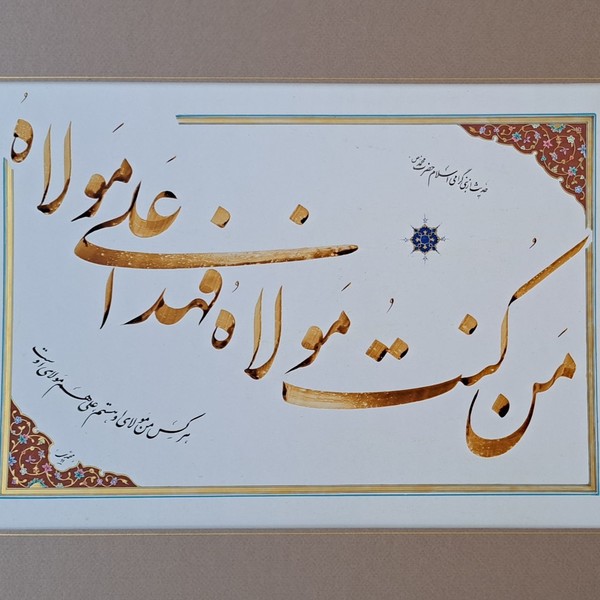 حدیث از نبی گرامی اسلام حضرت محمد ص
مَن کُنتُ مَولاهُ فهذا عَلی مَولاهُ
هر کس من مولای او هستم علی هم مولای اوست